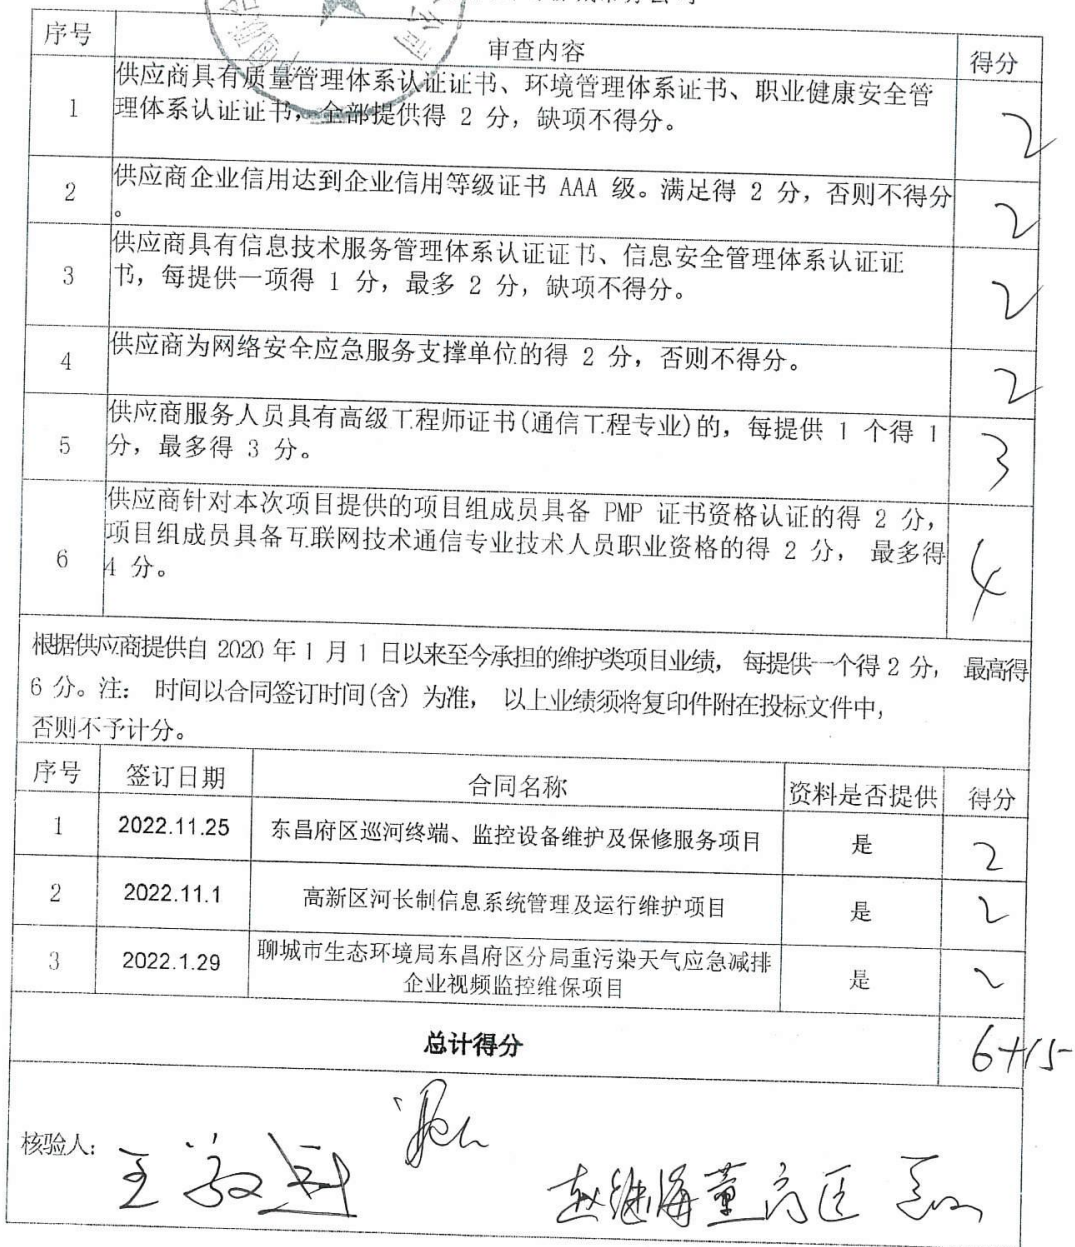 序号 审查内容 得分
1 供应商具有质量管理体系认证证书、环境管理体系证书、职业健康安全管
理体系认证证书，全部提供得 2 分，缺项不得分。 2
2 供应商企业信用达到企业信用等级证书 AAA 级。满足得 2 分，否则不得分
。 2
3 供应商具有信息技术服务管理体系认证证书、信息安全管理体系认证证
书，每提供一项得 1 分，最多 2 分，缺项不得分。 2
4 供应商为网络安全应急服务支撑单位的得 2 分，否则不得分。 2
5 供应商服务人员具有高级工程师证书(通信工程专业)的，每提供 1 个得 1
分，最多得 3 分。 3
6 供应商针对本次项目提供的项目组成员具备 PMP 证书资格认证的得 2 分，
项目组成员具备互联网技术通信专业技术人员职业资格的得 2 分， 最多得
4 分。 4
根据供应商提供自 2020 年 1 月 1 日以来至今承担的维护类项目业绩， 每提供一个得 2 分， 最高得
6 分。注： 时间以合同签订时间(含) 为准， 以上业绩须将复印件附在投标文件中，
否则不予计分。
序号 签订日期 合同名称 资料是否提供 得分
1 2022.11.25 东昌府区巡河终端、监控设备维护及保修服务项目 是 2
2 2022.11.1 高新区河长制信息系统管理及运行维护项目 是 2
3 2022.1.29 聊城市生态环境局东昌府区分局重污染天气应急减排
企业视频监控维保项目 是 2
总计得分 6+15
核验人：